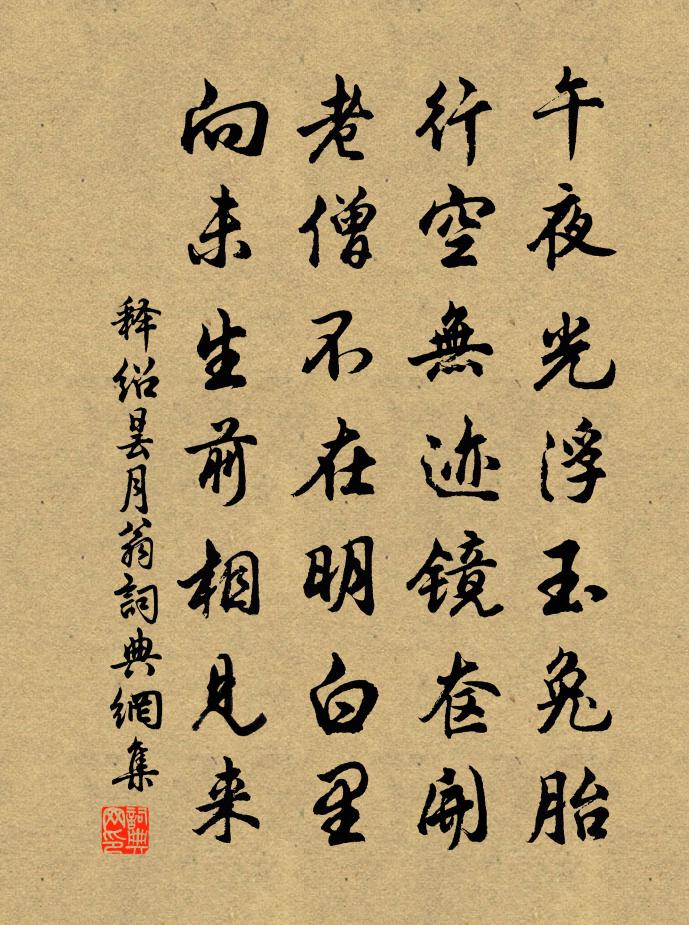 午夜光浮玉兔胎
行空無迹镜奁開
老僧不在明白里
向未生前相見来
释紹曇月翁詞典網集
詞典网印